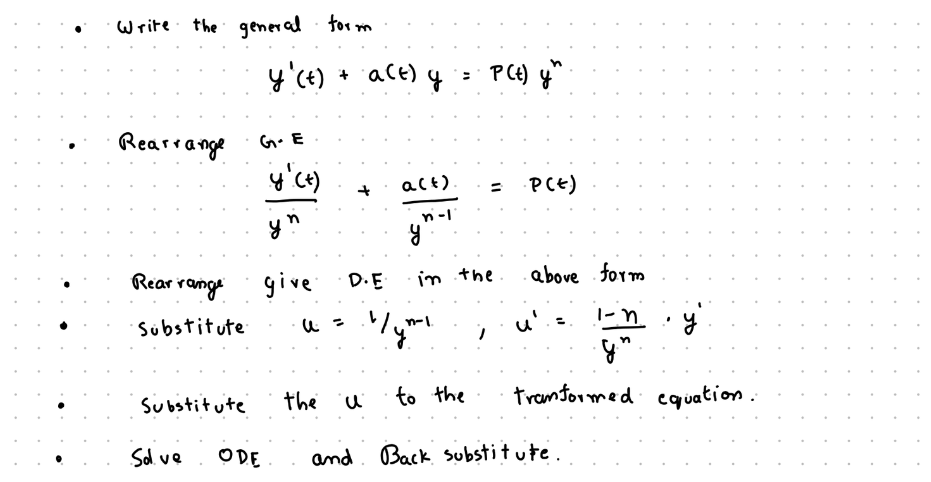 • Write the general form
y'(t) + a(t) y = P(t) y^n
• Rearrange G.E
y'(t)/y^n + a(t)/y^(n-1) = P(t)
• Rearrange give D.E in the above form
• Substitute u = 1/y^(n-1) , u' = (1-n)/y^n · y'
• Substitute the u to the transformed equation.
• Solve ODE and Back substitute.